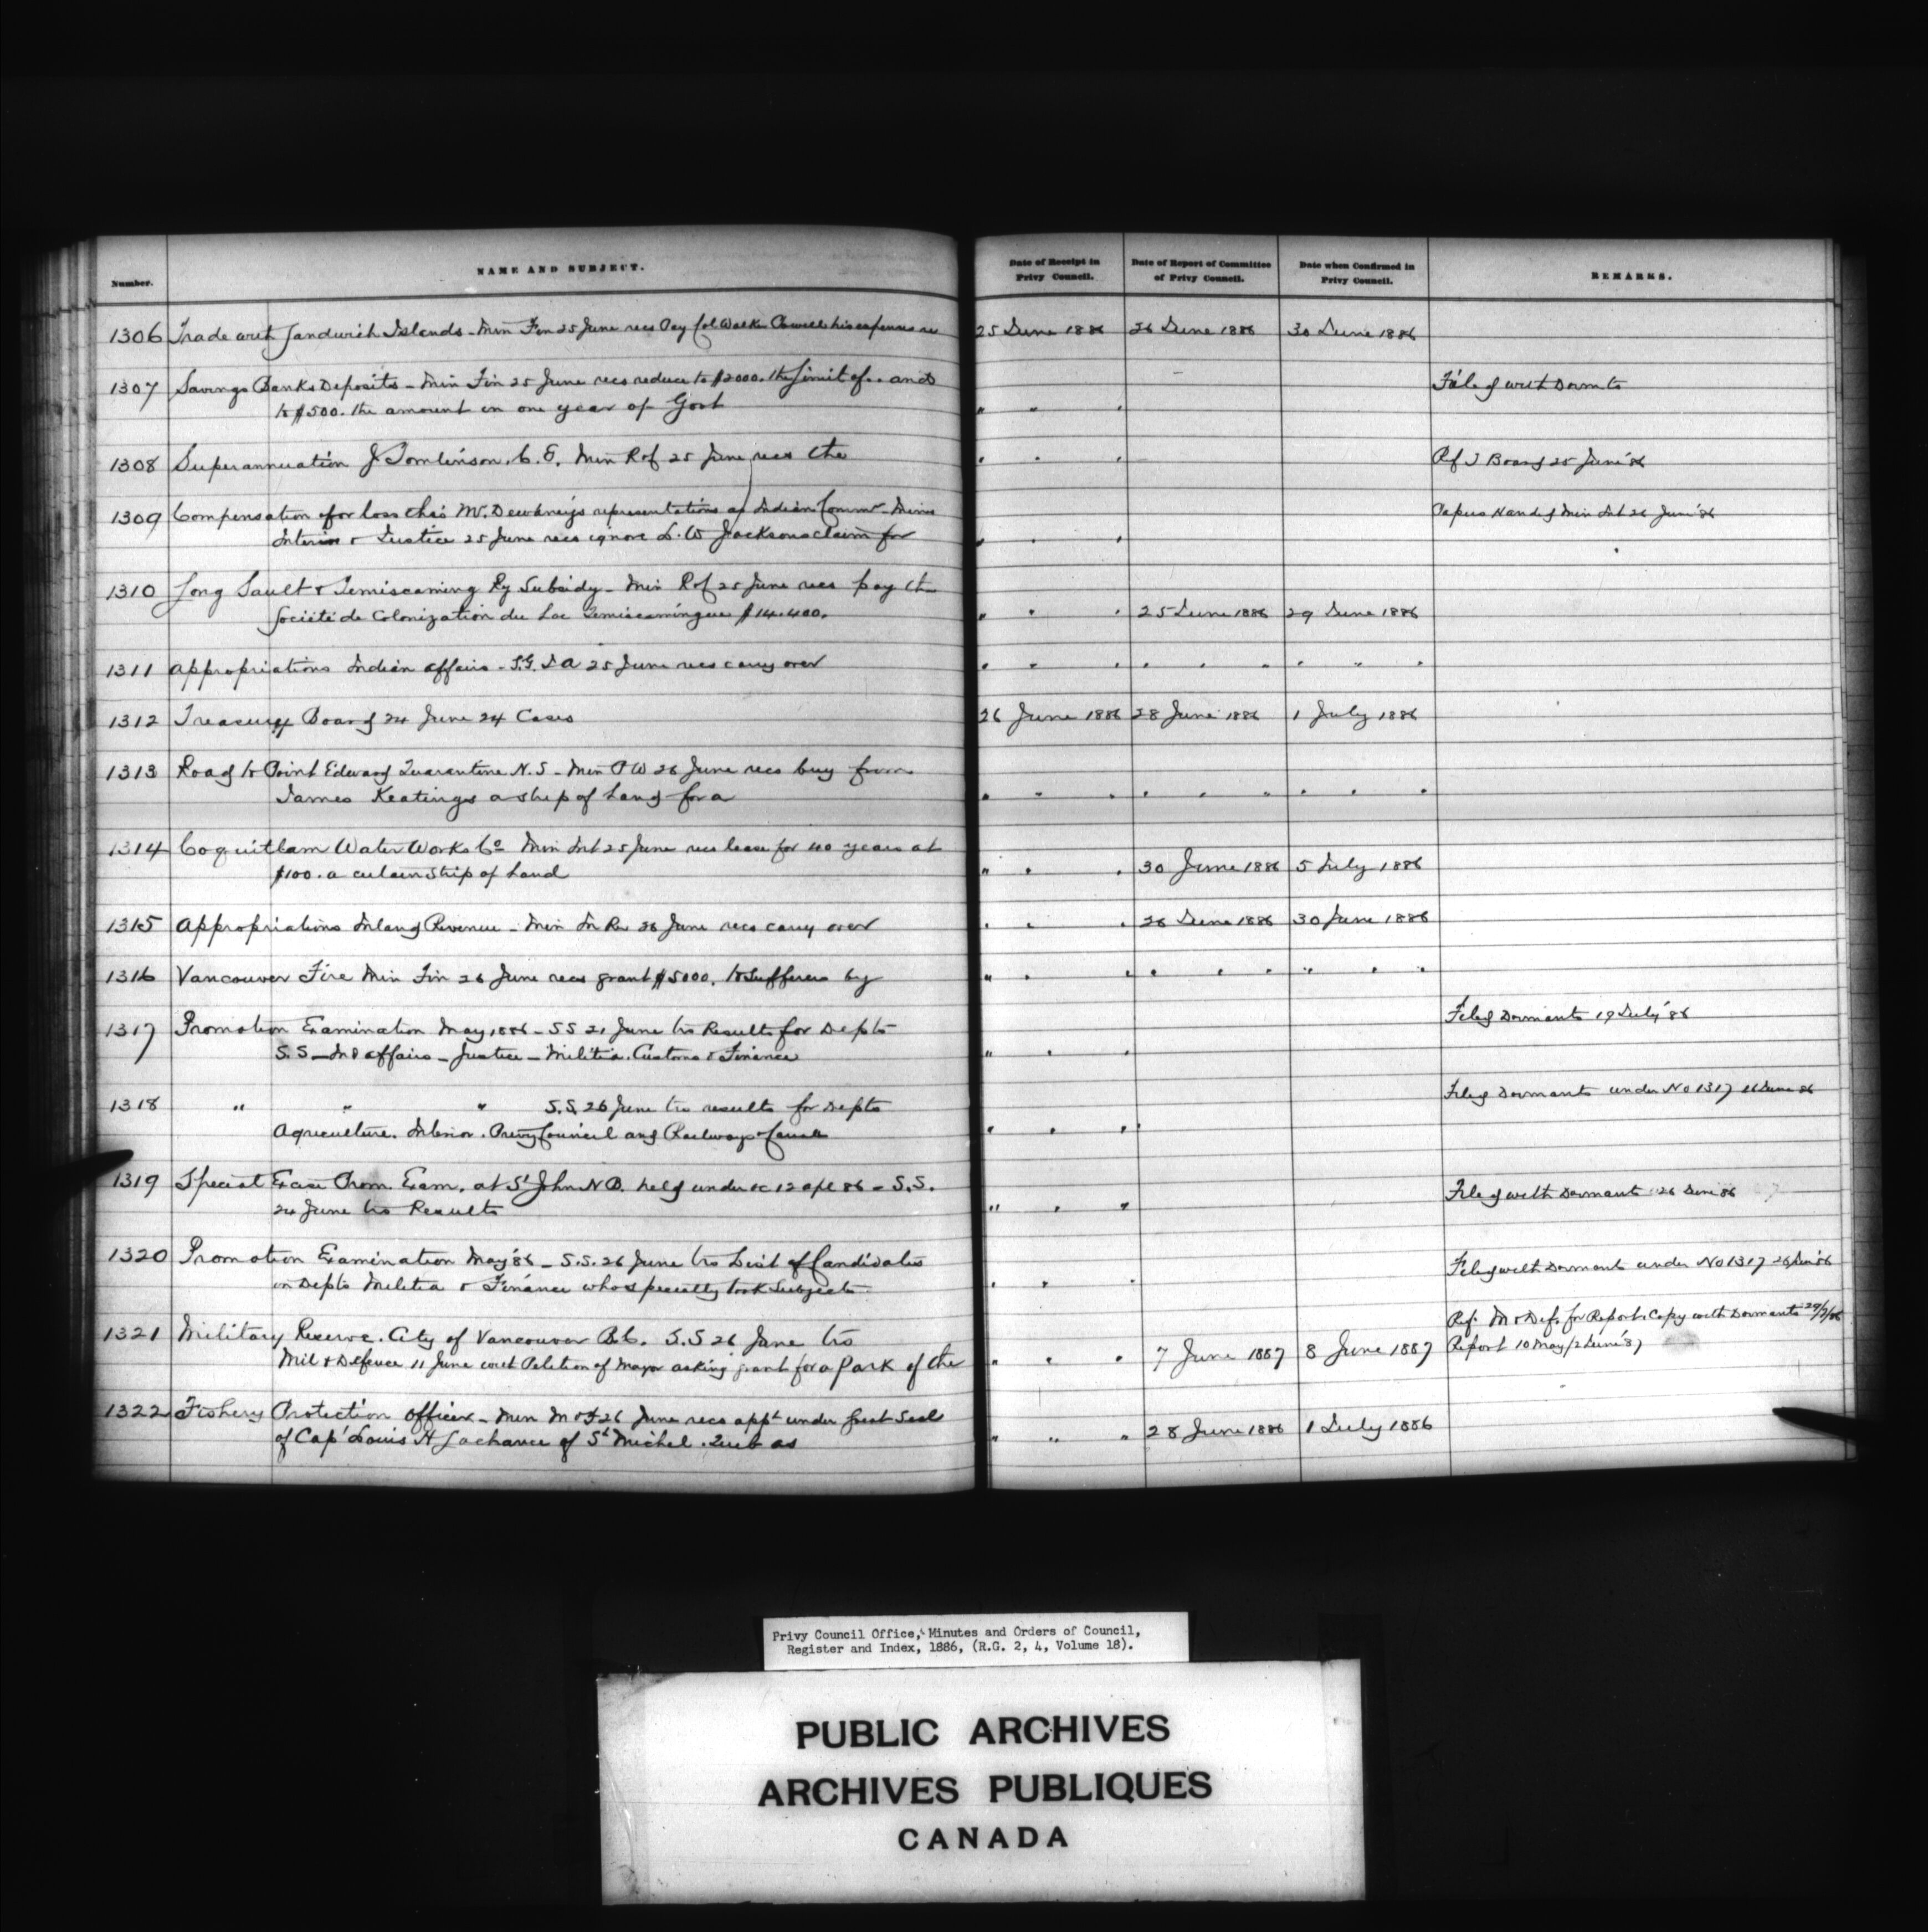 Number.
NAME AND SUBJECT.
Date of Receipt in Privy Council.
Date of Report of Committee of Privy Council.
Date when Confirmed in Privy Council.
REMARKS.
1306 Trade with Sandwich Islands - Min Fin 25 June recs Pay Col his expenses re 25 June 1886 26 June 1886 30 June 1886
1307 Savings Banks Deposits - Min Fin 25 June recs reduce to $2000. the limit of .. and Filed with Dormts
to $500. the amount in one year of Govt " " "
1308 Superannuation J Tomlinson. C. E. Min R of 25 June recs the " " " Ref T Board 25 June '86
1309 Compensation for loss thro Mr. Dewdney's representations as Indian Commr - Mins Papers Handed Min Int 26 June '86
Interior & Justice 25 June recs ignore L. W Jacksons claim for " " "
1310 Long Sault & Temiscaming Ry Subsidy - Min R of 25 June recs pay the
Société de Colonization du Lac Temiscamingue $14.400. " " " 25 June 1886 29 June 1886
1311 Appropriations Indian Affairs - S.G. I A 25 June recs carry over " " " " " " " " "
1312 Treasury Board 24 June 24 Cases 26 June 1886 28 June 1886 1 July 1886
1313 Road to Point Edward Quarantine N. S - Min P W 26 June recs buy from
James Keatings a strip of land for a " " " " " " " " "
1314 Coquitlam Water Works Co Min Int 25 June recs lease for 40 years at
$100. a certain strip of Land " " " 30 June 1886 5 July 1886
1315 Appropriations Inland Revenue - Min In Rev 26 June recs carry over " " " 26 June 1886 30 June 1886
1316 Vancouver Fire Min Fin 26 June recs grant $5000. to Sufferers by " " " " " " " " "
1317 Promotion Examination May 1886 - S S 21 June trs Results for Depts Filed Dormants 19 July '86
S. S - Ind affairs - Justice - Militia. Customs & Finance " " "
1318 " " " S. S. 26 June trs results for Depts Filed Dormants under No 1317 26 June 86
Agriculture. Interior. Privy Council and Railways & Canals " " "
1319 Special Exam. at St John N B. held under 12 Apl 86 - S. S. Filed with Dormants 26 June 86
24 June trs Results " " "
1320 Promotion Examination May '86 - S. S. 26 June trs List of Candidates Filed with Dormants under No 1317 26 June '86
in Depts Militia & Finance who specially took Subjects " " "
1321 Military Reserve. City of Vancouver B. C. S. S 26 June trs Ref. M & Def. for Report. Copy with Dormants
Mil & Defence 11 June with Petition of Mayor asking grant for a Park of the " " " 7 June 1887 8 June 1887 Report 10 May/2 June '87
1322 Fishery Protection Officer - Min M & F 26 June recs appt under Great Seal
of Capt Louis H Lachance of St Michel. Queb as " " " 28 June 1886 1 July 1886
Privy Council Office, Minutes and Orders of Council,
Register and Index, 1886, (R.G. 2, 4, Volume 18).
PUBLIC ARCHIVES
ARCHIVES PUBLIQUES
CANADA